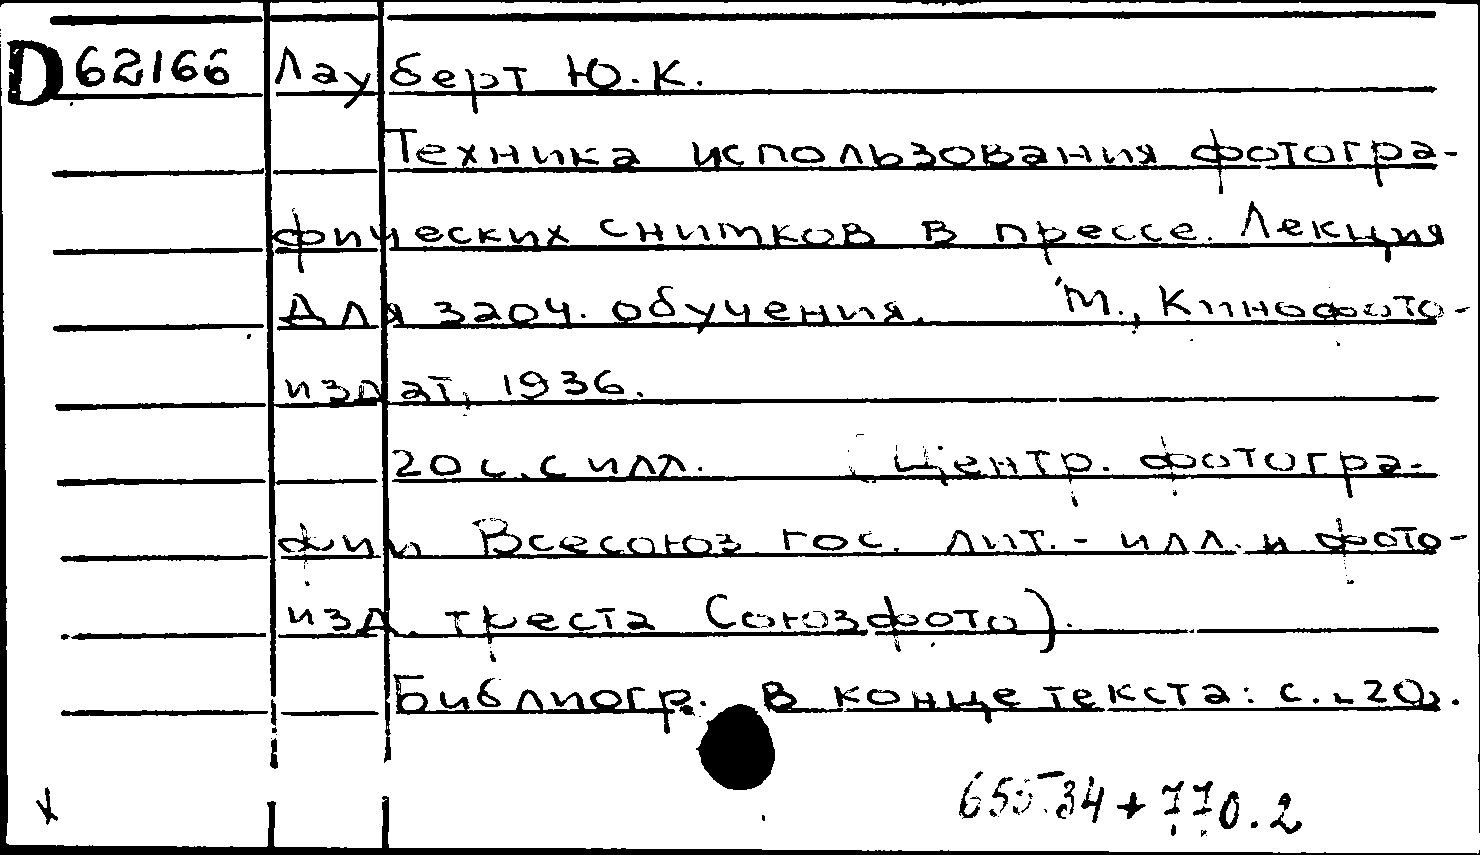 D 62166 Лауберт Ю.К.
Техника использования фотогра-
фических снимков в прессе. Лекция
для заоч. обучения. М., Кинофото-
издат, 1936.
20 с. с илл. (Центр. фотогра-
фии Всесоюз гос. лит.- илл. и фото-
изд. треста Союзфото).
Библиогр. в конце текста: с. 20.
655.34 + 770.2